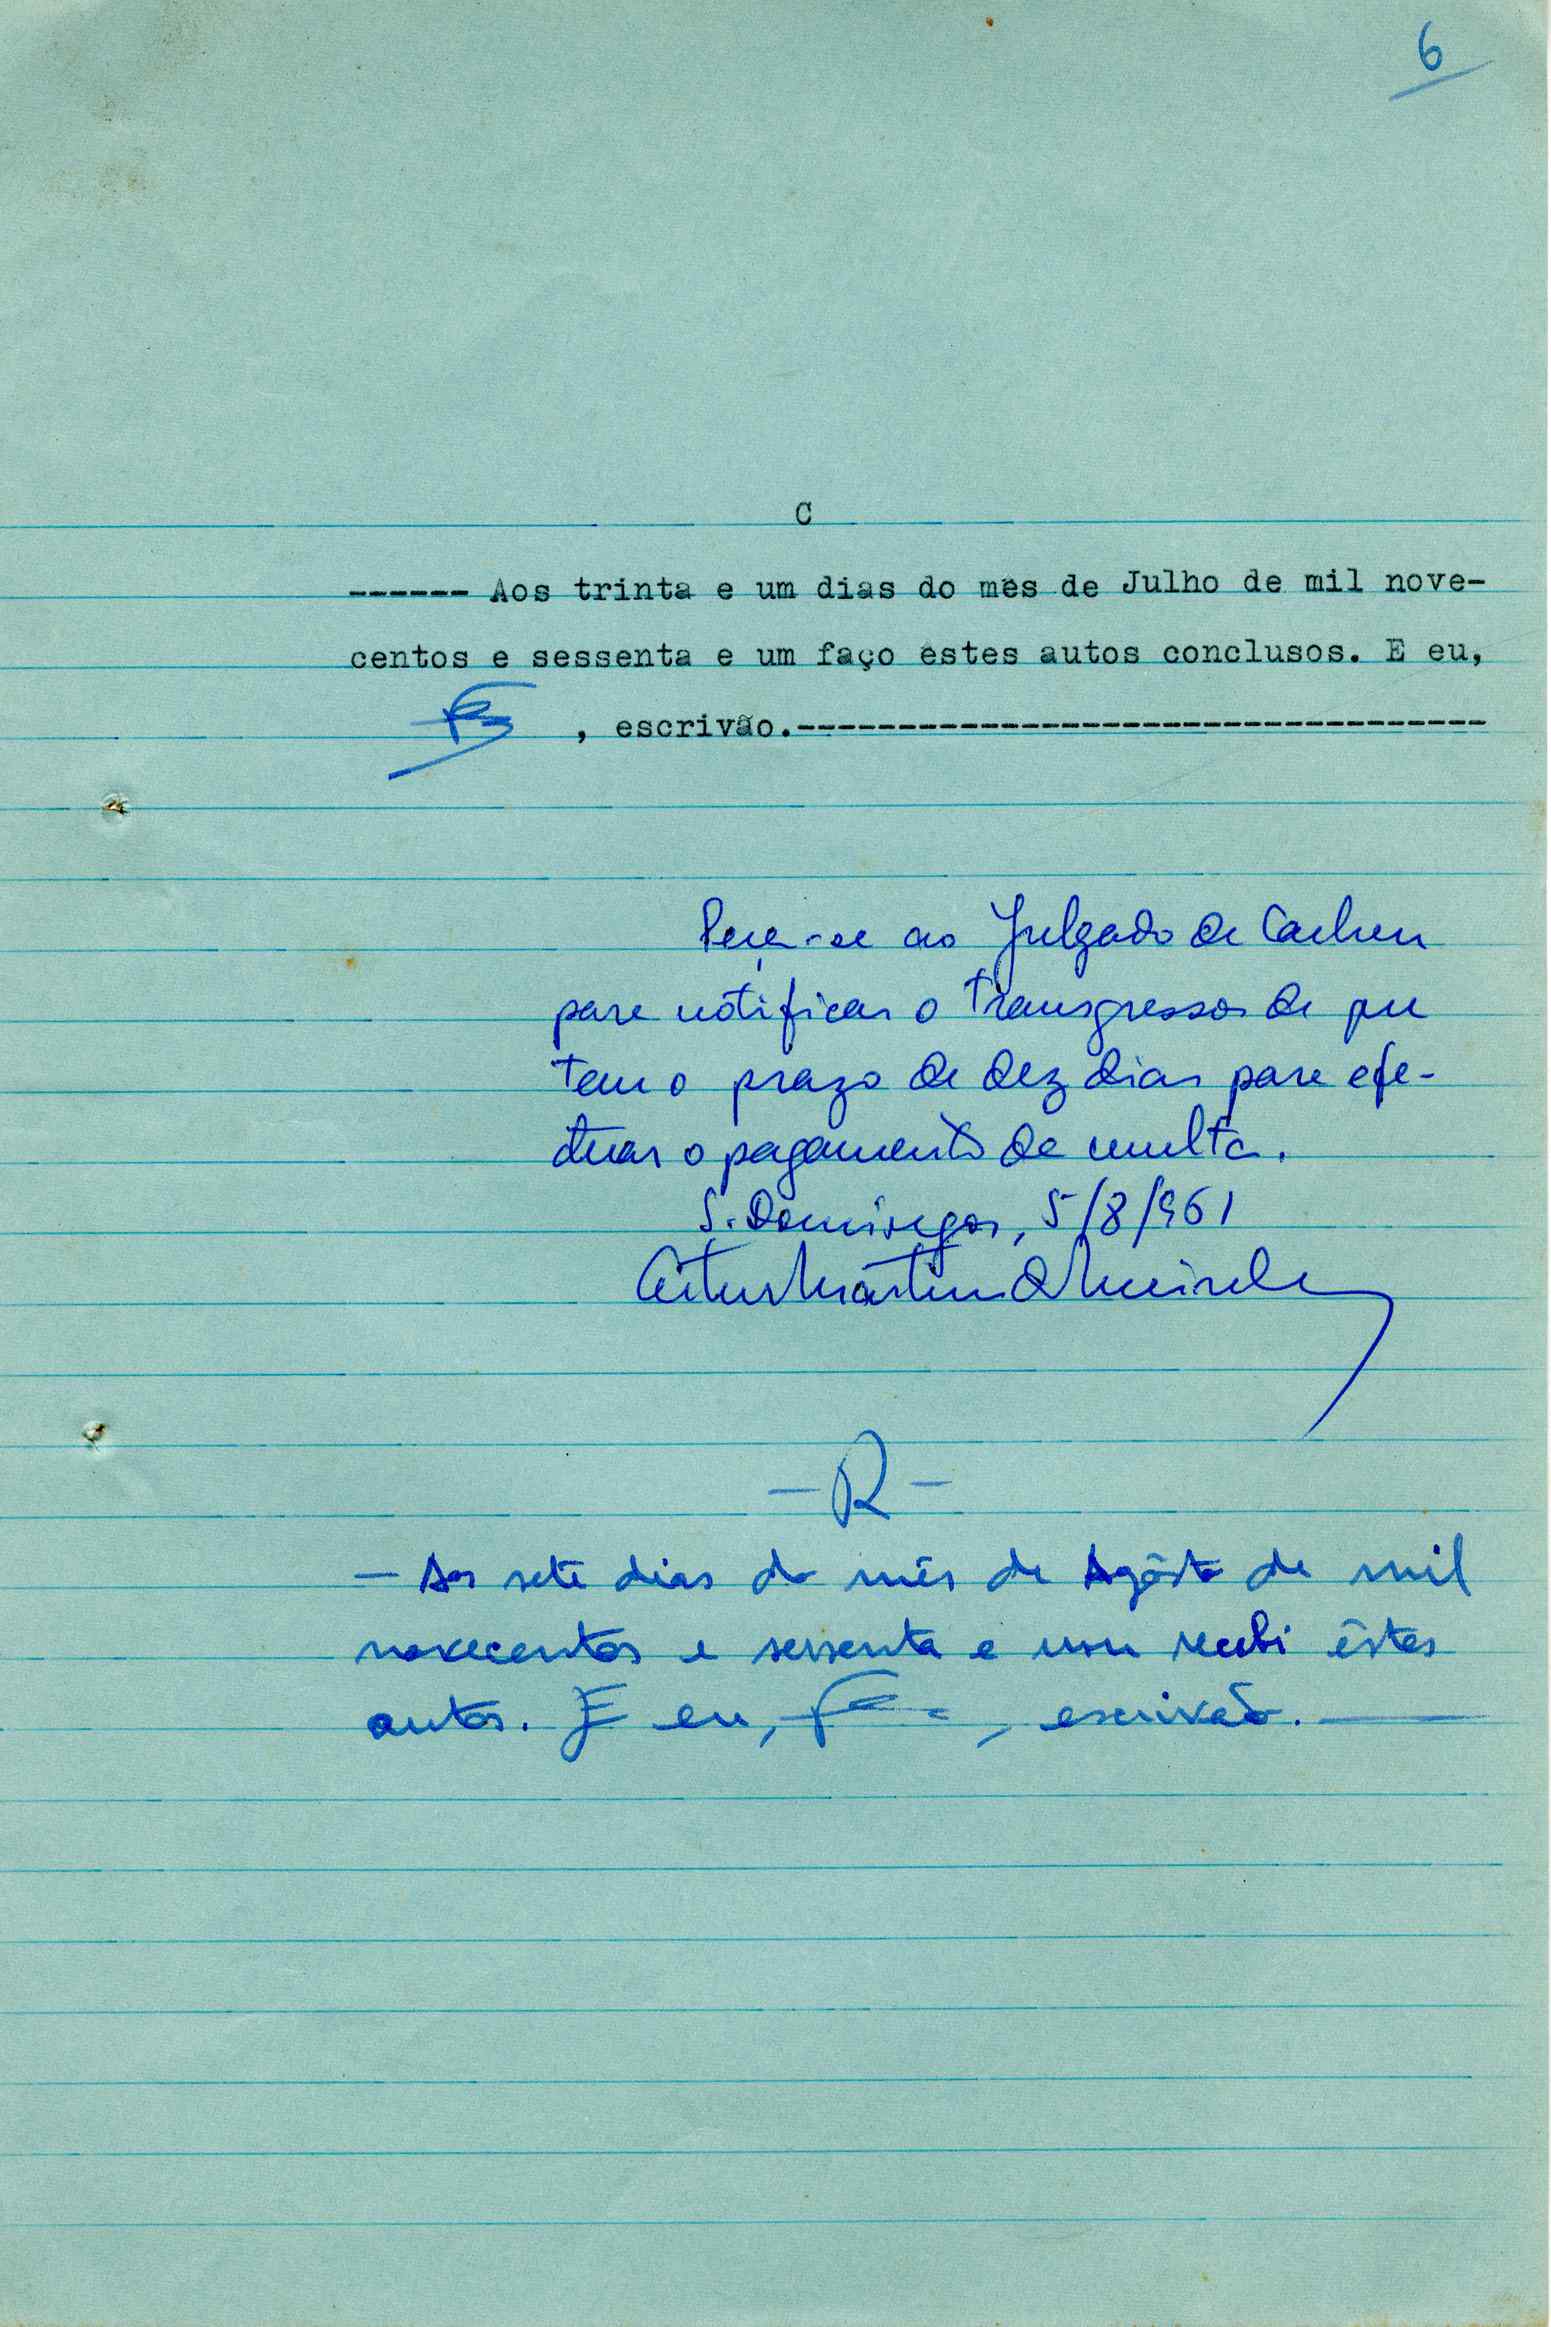 6
C
------ Aos trinta e um dias do mês de Julho de mil nove-
centos e sessenta e um faço êstes autos conclusos. E eu,
, escrivão.----------------------------------
Peça-se ao Julgado de Cacheu
para notificar o transgressor de que
tem o prazo de dez dias para efe-
tuar o pagamento da multa.
S. Domingos, 5/8/961
- R -
- Aos sete dias do mês de Agôsto de mil
novecentos e sessenta e um recebi êstes
autos. E eu, , escrivão.